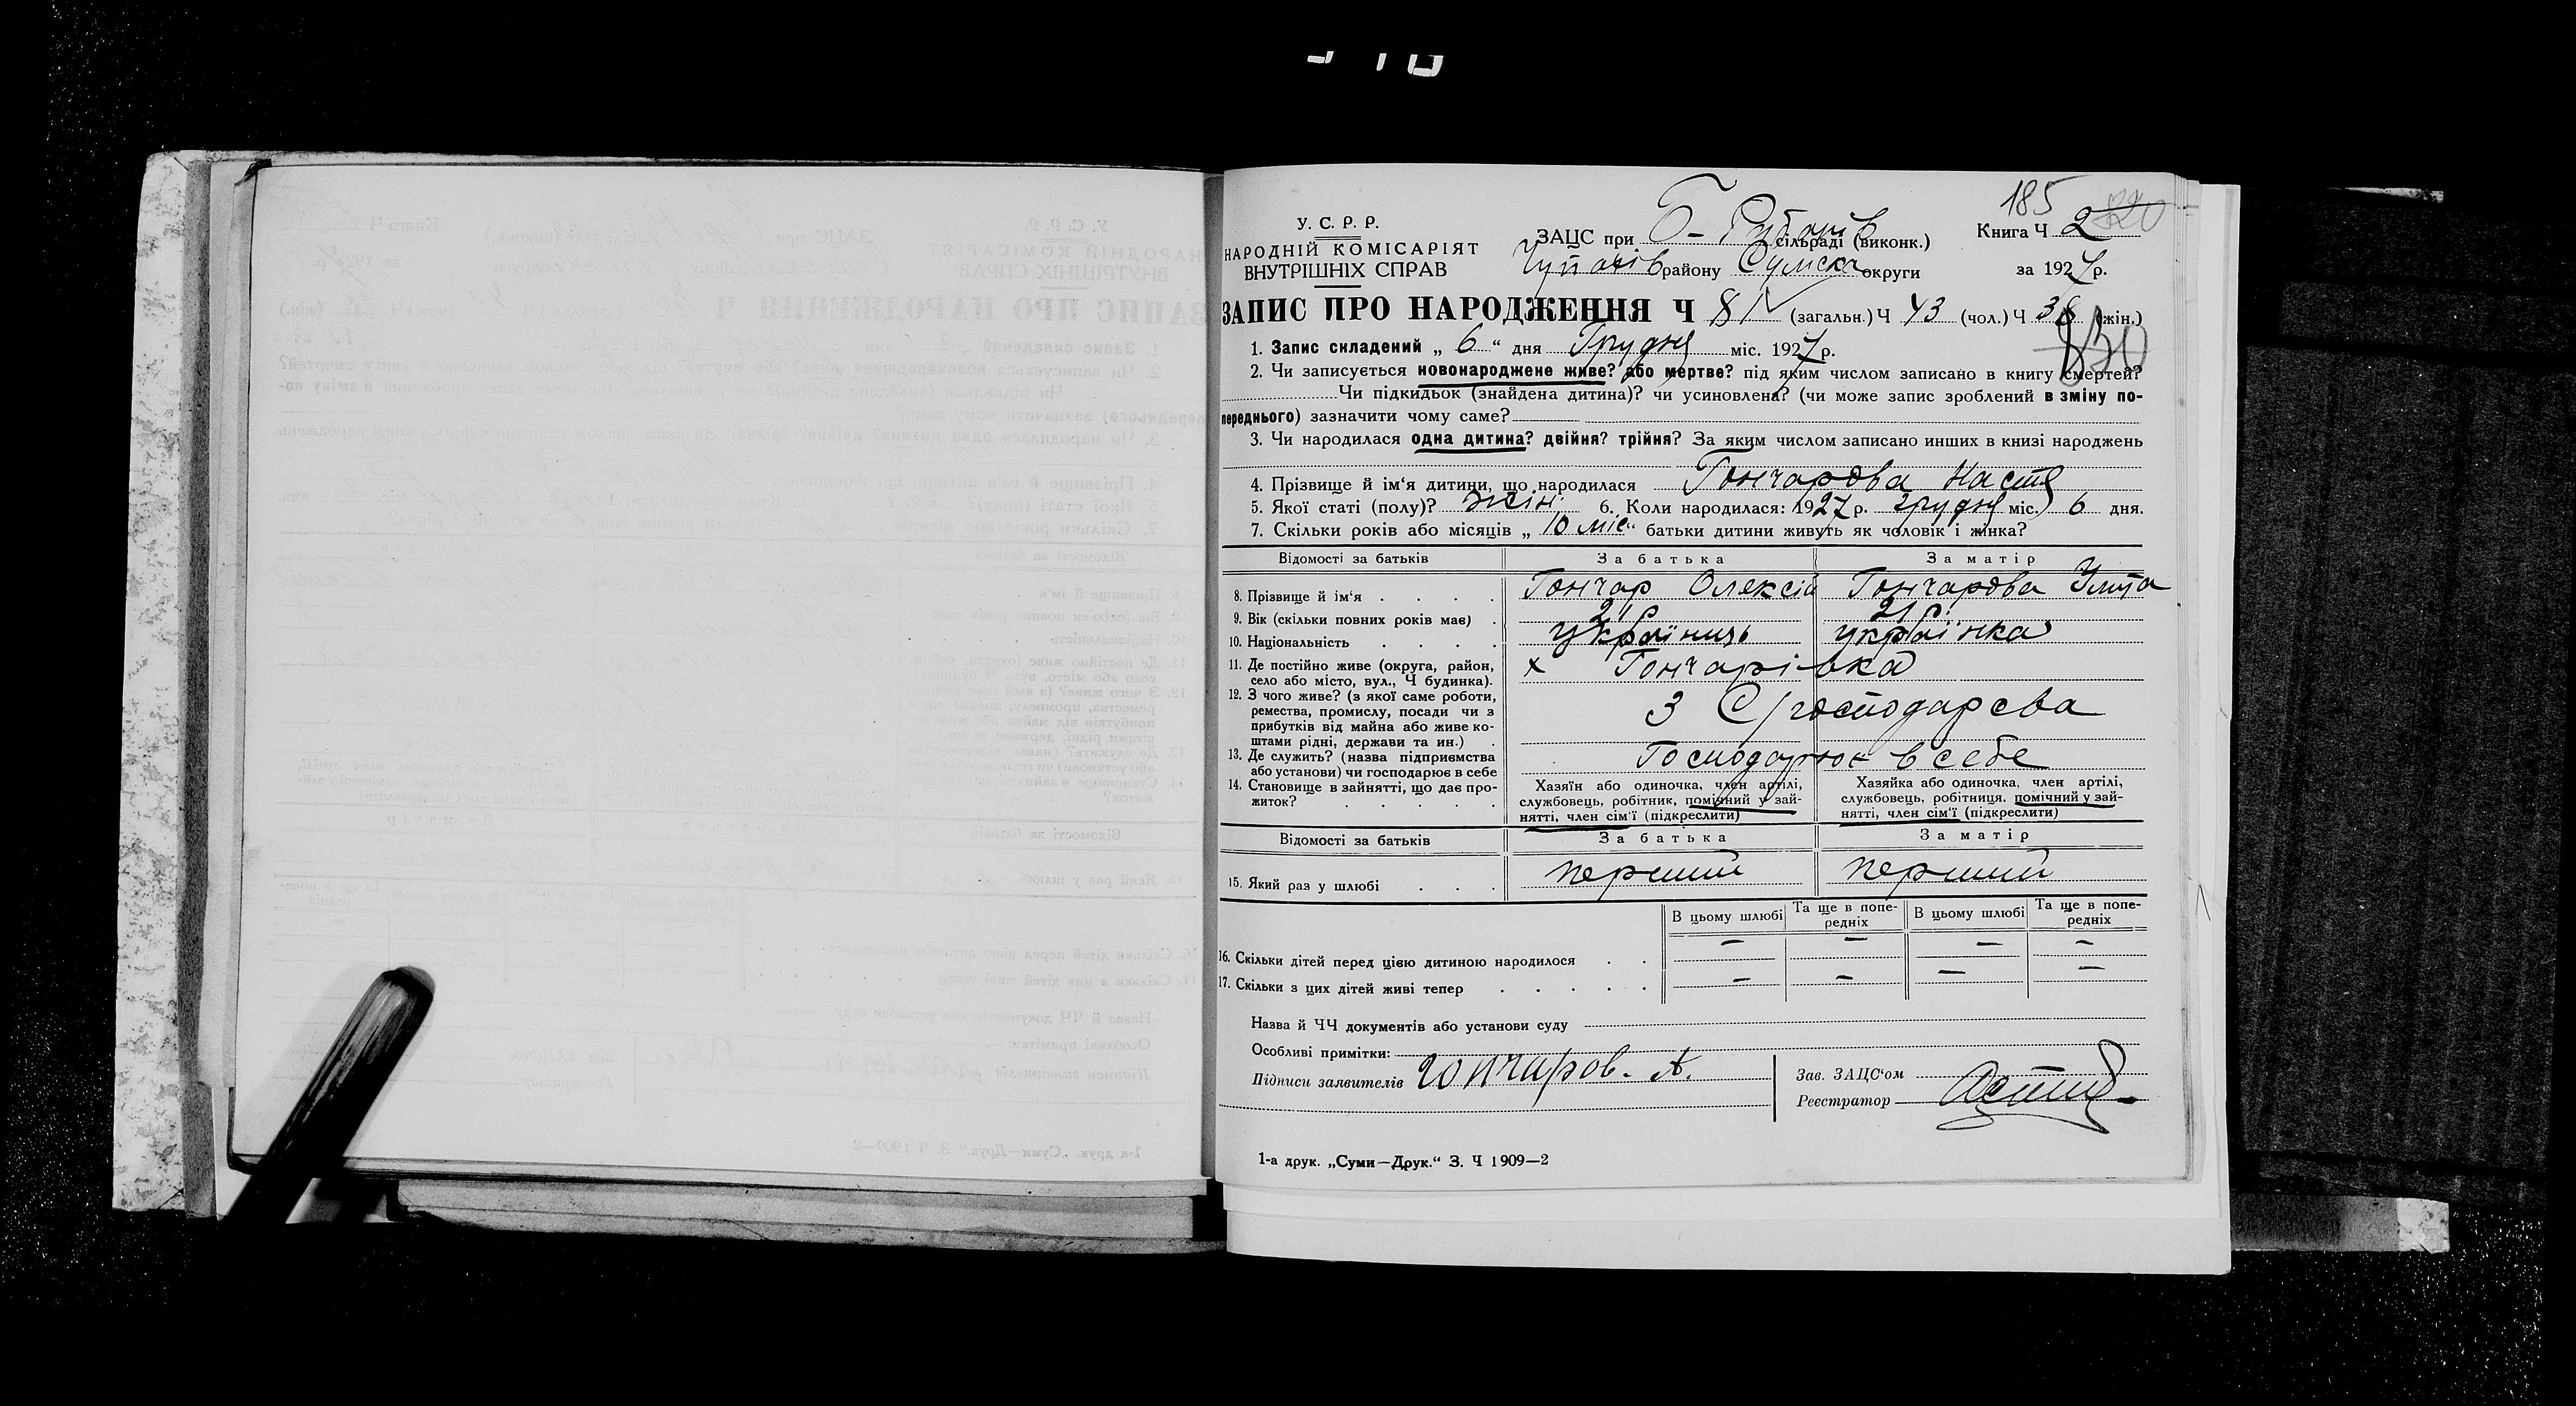 185
820
У. С. Р. Р.
НАРОДНІЙ КОМІСАРІЯТ
ВНУТРІШНІХ СПРАВ
ЗАЦС при Б - Рубанів сільраді (виконк.)
Книга Ч 2
Чупахів району Сумська округи
за 1927 р.
ЗАПИС ПРО НАРОДЖЕННЯ Ч 81 (загальн.) Ч 43 (чол.) Ч 38 (жін.)
830
1. Запис складений „ 6 “ дня Грудня міс. 1927 р.
2. Чи записується новонароджене живе? або мертве? під яким числом записано в книгу смертей?
Чи підкидьок (знайдена дитина)? чи усиновлена? (чи може запис зроблений в зміну по-
переднього) зазначити чому саме?
3. Чи народилася одна дитина? двійня? трійня? За яким числом записано инших в книзі народжень
4. Прізвище й ім‘я дитини, що народилася Гончарова Настя
5. Якої статі (полу)? жін. 6. Коли народилася: 1927 р. грудня міс. 6 дня.
7. Скільки років або місяців „ 10 міс “ батьки дитини живуть як чоловік і жінка?
Відомості за батьків За батька За матір
8. Прізвище й ім‘я Гончар Олексій Гончарова Улита
9. Вік (скільки повних років має) 21 р. 21 р.
10. Національність українць українка
11. Де постійно живе (округа, район,
село або місто, вул., Ч будинка). х Гончарівка
12. З чого живе? (з якої саме роботи,
ремества, промислу, посади чи з
прибутків від майна або живе ко-
штами рідні, держави та ин.) З С/господарсва
13. Де служить? (назва підприємства
або установи) чи господарює в себе Господарює в себе
14. Становище в зайнятті, що дає про-
житок?
Хазяїн або одиночка, член артілі,
службовець, робітник, помічний у зай-
нятті, член сім‘ї (підкреслити)
Хазяйка або одиночка, член артілі,
службовець, робітниця, помічний у зай-
нятті, член сім‘ї (підкреслити)
Відомості за батьків За батька За матір
15. Який раз у шлюбі перший перший
В цьому шлюбі Та ще в попе-
редніх В цьому шлюбі Та ще в попе-
редніх
16. Скільки дітей перед цією дитиною народилося — — — —
17. Скільки з цих дітей живі тепер — — — —
Назва й ЧЧ документів або установи суду
Особливі примітки:
Підписи заявителів гончаров. А.
Зав. ЗАЦС‘ом
Реєстратор
1-а друк. „Суми—Друк.“ З. Ч 1909—2